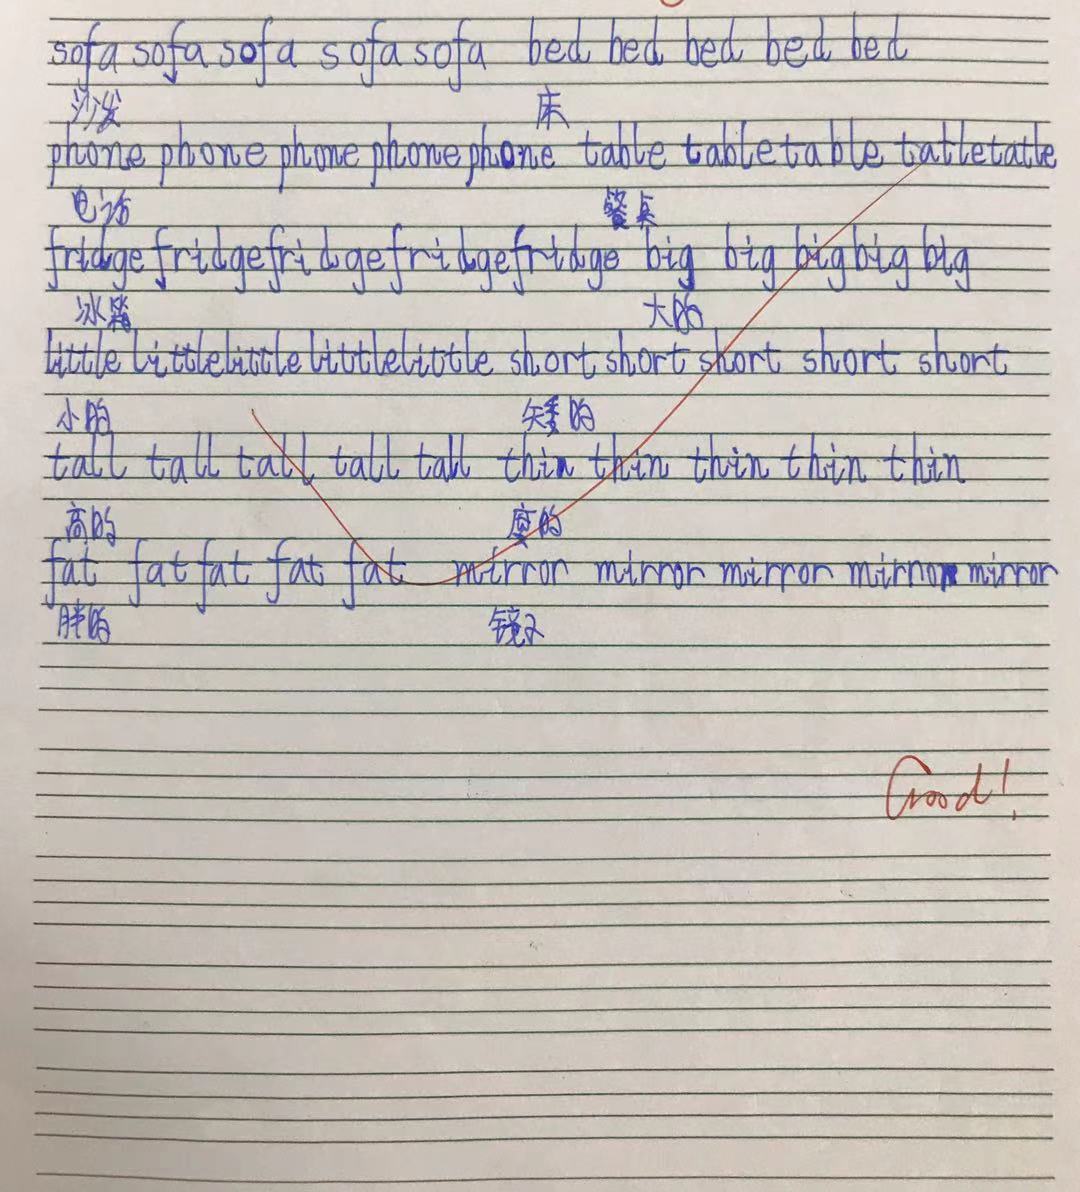 sofa sofa sofa sofa sofa bed bed bed bed bed
沙发 床
phone phone phone phone phone table table table tatle tatle
电话 餐桌
fridge fridge fridge fridge fridge big big big big big
冰箱 大的
little little little little little short short short short short
小的 矮的
tall tall tall tall tall thin thin thin thin thin
高的
fat fat fat fat fat mirror mirror mirror mirror mirror
胖的 镜子
Good!